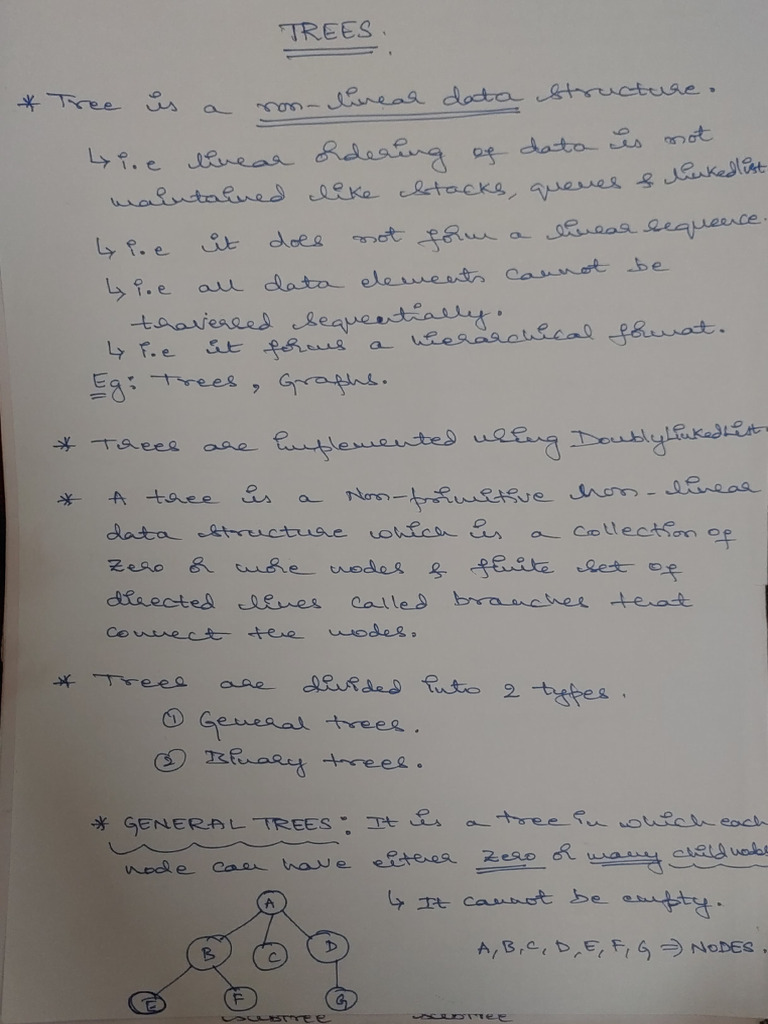 TREES.
* Tree is a non-linear data structure.
↳ i.e linear ordering of data is not
maintained like stacks, queues & linkedlist
↳ i.e it does not form a linear sequence.
↳ i.e all data elements cannot be
traversed sequentially.
↳ i.e it forms a hierarchical format.
Eg: Trees, Graphs.
* Trees are implemented using DoublyLinkedList.
* A tree is a Non-primitive Non-linear
data structure which is a collection of
zero or more nodes & finite set of
directed lines called branches that
connect the nodes.
* Trees are divided into 2 types.
① General trees.
② Binary trees.
* GENERAL TREES: It is a tree in which each
node can have either zero or many child nodes
↳ It cannot be empty.
A
B C D
A, B, C, D, E, F, G ⇒ NODES.
E F G
SUBTREE SUBTREE